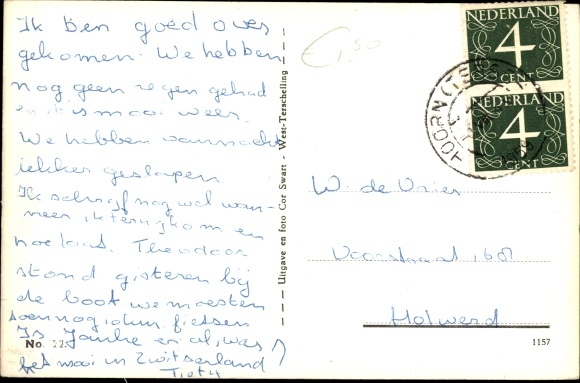 Ik ben goed over
gekomen. We hebben
nog geen regen gehad
en 't is mooi weer.
We hebben vannacht
lekker geslapen
Ik schrijf nog wel wan-
neer ik terugkom en
hoe laat. Theodoor
stond gisteren bij
de boot we moesten
toen nog iets fietsen
Is Janke er al, was
het mooi in Zwitserland?
No. 22
Uitgave en foto Cor Swart - West-Terschelling
€1,50
NEDERLAND
4
CENT
NEDERLAND
4
CENT
HOORN (TERS
W. de Vries
Voorstraat
Holwerd
1157